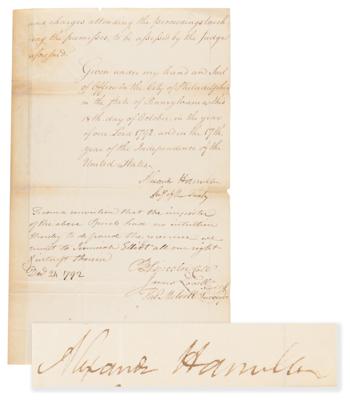 and charges attending the proceedings touch
ing the premises, to be assessed by the Judge
aforesaid.
Given under my hand and Seal
of Office in the City of Philadelphia
in the State of Pennsylvania this
18th day of October, in the year
of our Lord 1792, and in the 17th
year of the Independence of the
United States.
Alexandr Hamilton
Secy of the Treasy
From a conviction that the importer
of the above Spirits had no intention
thereby to defraud the revenue we
remit to Jeremiah Elliott all our right
& interest therein
Decr 24 1792
B Lincoln Coll
James Lovell
Thos Melvill
Alexandr Hamilton